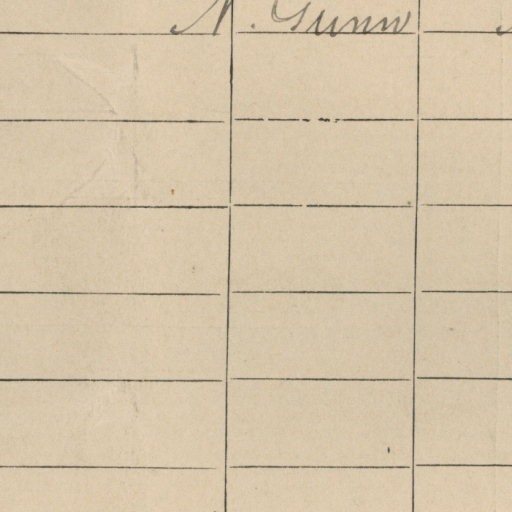 N. Gunn